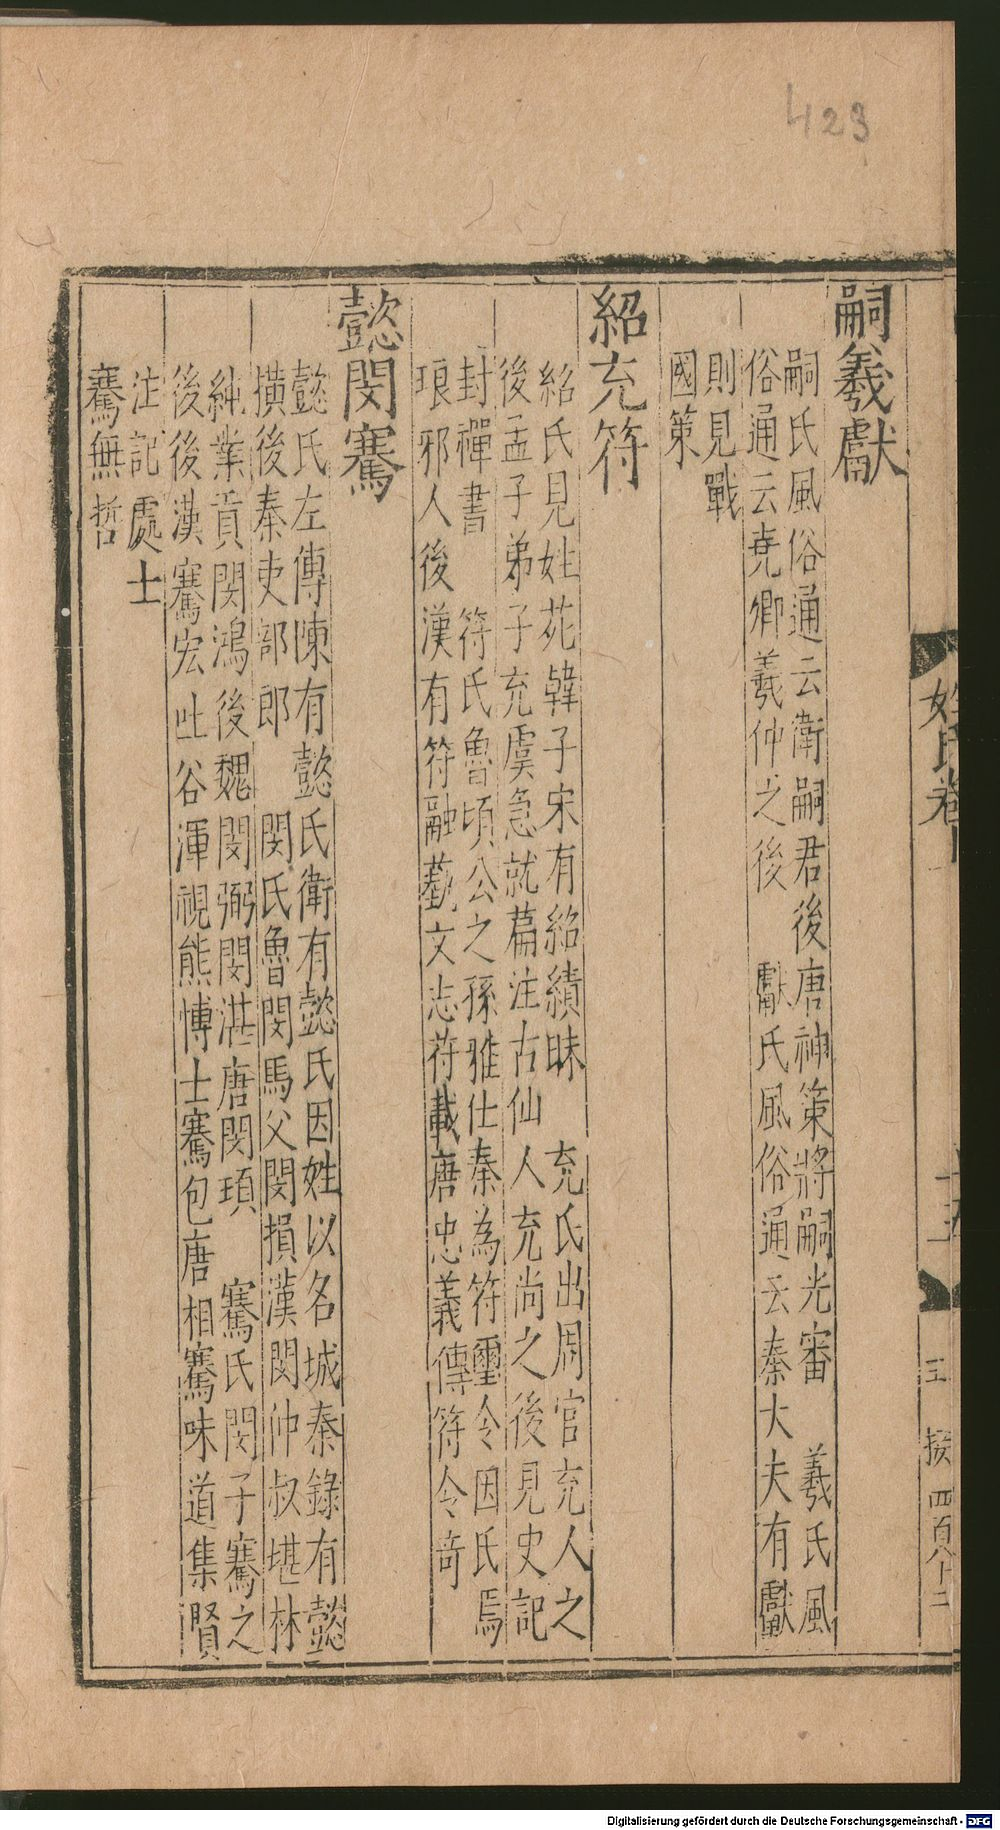 423
嗣羲獻
嗣氏風俗通云衛嗣君後唐神策將嗣光審　羲氏風
俗通云堯卿羲仲之後　獻氏風俗通云秦大夫有獻
則見戰
國策
紹充符
紹氏見姓苑韓子宋有紹績昧　充氏出周官充人之
後孟子弟子充虞急就篇注古仙人充尚之後見史記
封禪書　符氏魯頃公之孫雅仕秦為符璽令因氏焉
琅邪人後漢有符融藝文志符載唐忠義傳符令奇
懿閔騫
懿氏左傳陳有懿氏衛有懿氏因姓以名城秦錄有懿
橫後秦吏部郎　閔氏魯閔馬父閔損漢閔仲叔堪林
純業貢閔鴻後魏閔弼閔湛唐閔頊　騫氏閔子騫之
後後漢騫宏吐谷渾視熊博士騫包唐相騫味道集賢
注記處士
騫無哲
姓氏卷
王　按　四百八十二
Digitalisierung gefördert durch die Deutsche Forschungsgemeinschaft - DFG